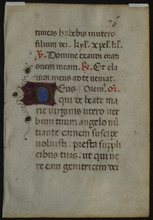 tuncas habebis in utero
filium dei. kyl'. xpel. kl'.
Domine exaudi orati
onem meam. Et cla
mor meus ad te veniat.
Deus Orem'.
qui de beate ma
rie virginis utero ver
bum tuum angelo nū
tiante carnem suscipe
voluisti. presta suppli
cibus tuis. ut qui ve
re eam genitricem dei